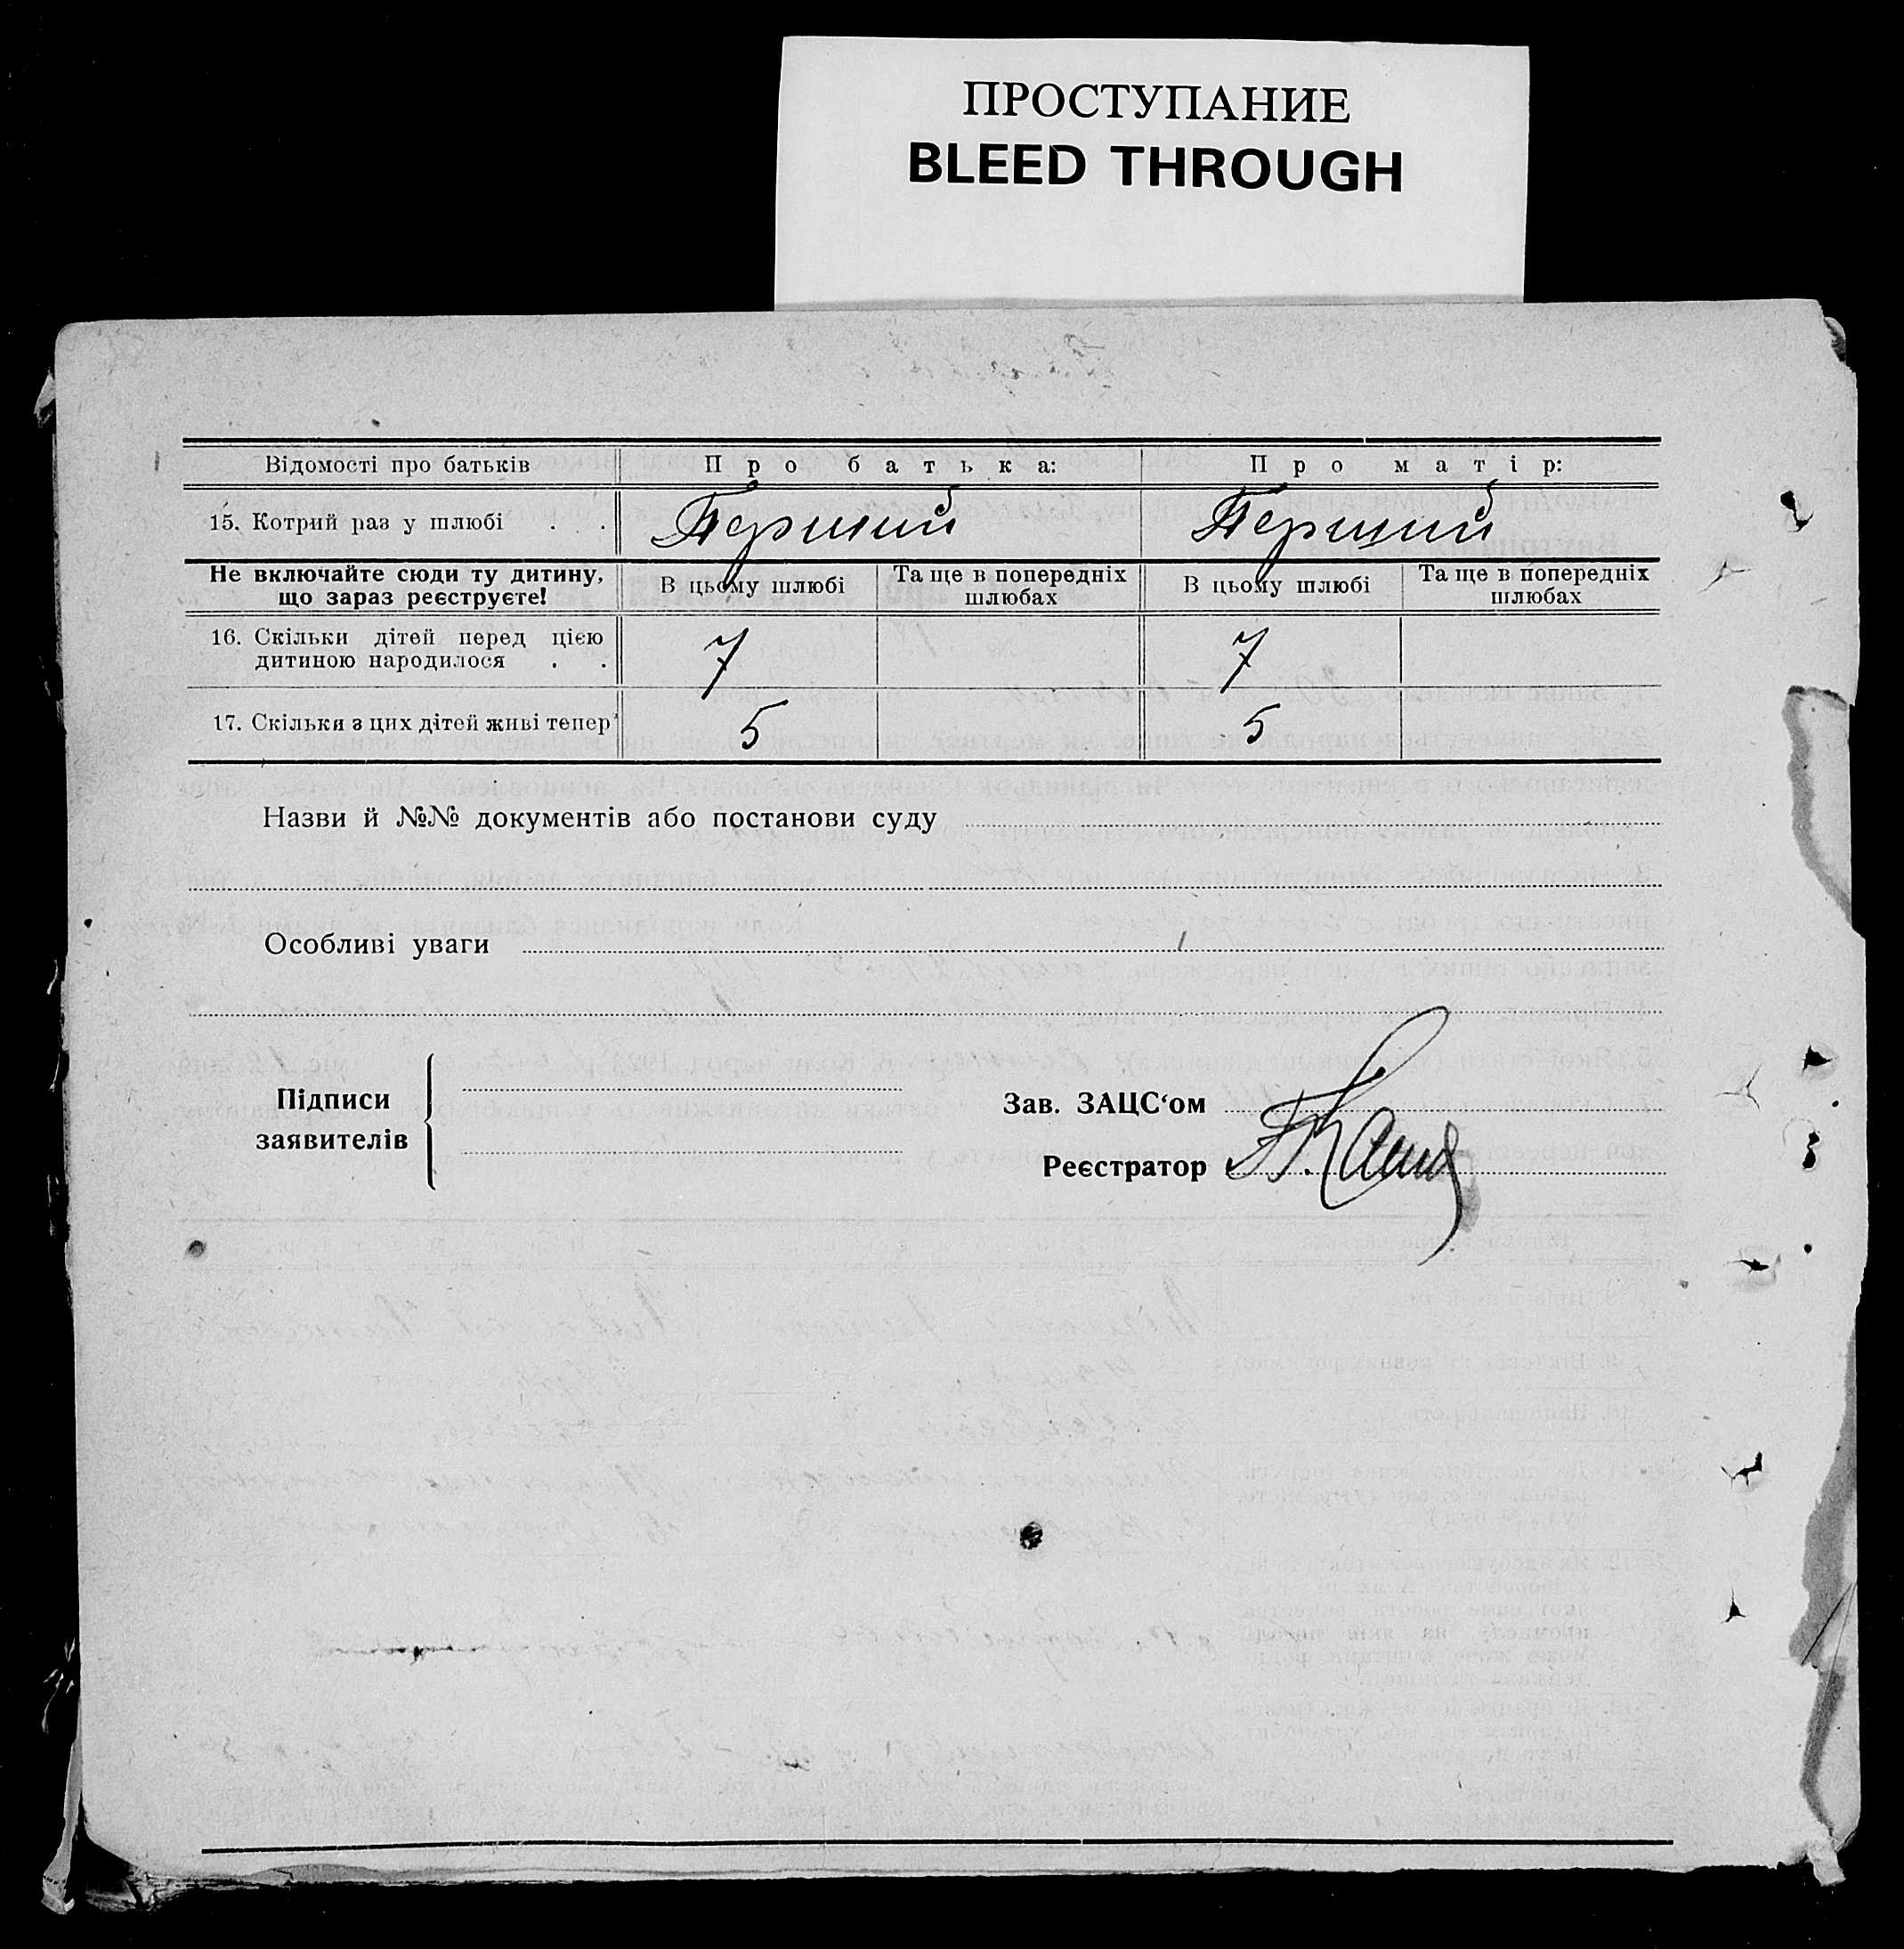 ПРОСТУПАНИЕ
BLEED THROUGH
Відомості про батьків Про батька: Про матір:
15. Котрий раз у шлюбі . . Перший Перший
Не включайте сюди ту дитину, що зараз реєструєте! В цьому шлюбі Та ще в попередніх шлюбах В цьому шлюбі Та ще в попередніх шлюбах
16. Скільки дітей перед цією
дитиною народилося . . 7 7
17. Скільки з цих дітей живі тепер 5 5
Назви й №№ документів або постанови суду
Особливі уваги
Підписи
заявителів
Зав. ЗАЦС‘ом
Реєстратор